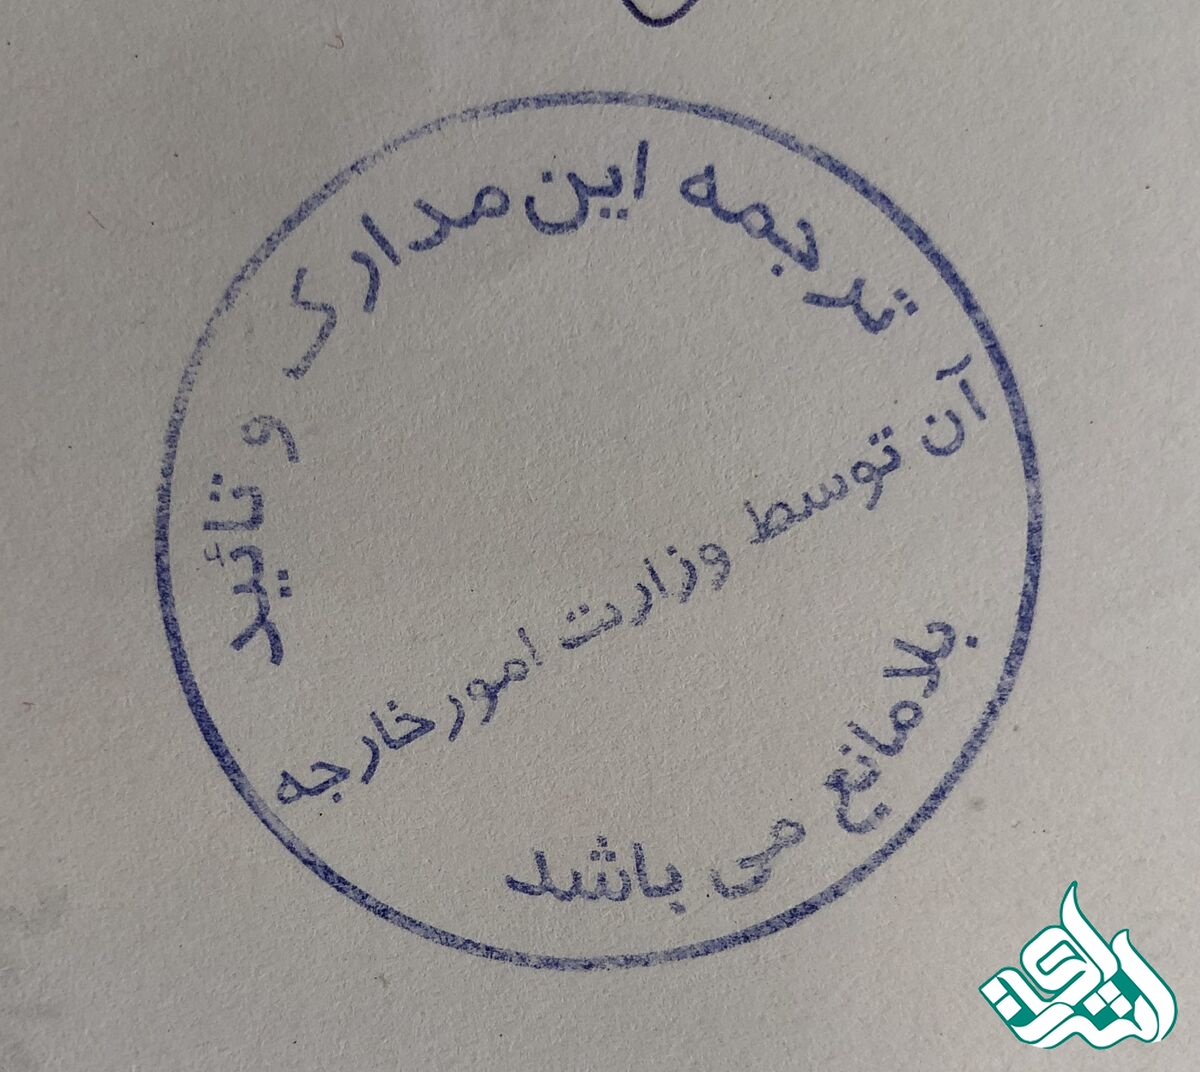 ترجمه این مدارک و تائید
آن توسط وزارت امور خارجه
بلامانع می باشد